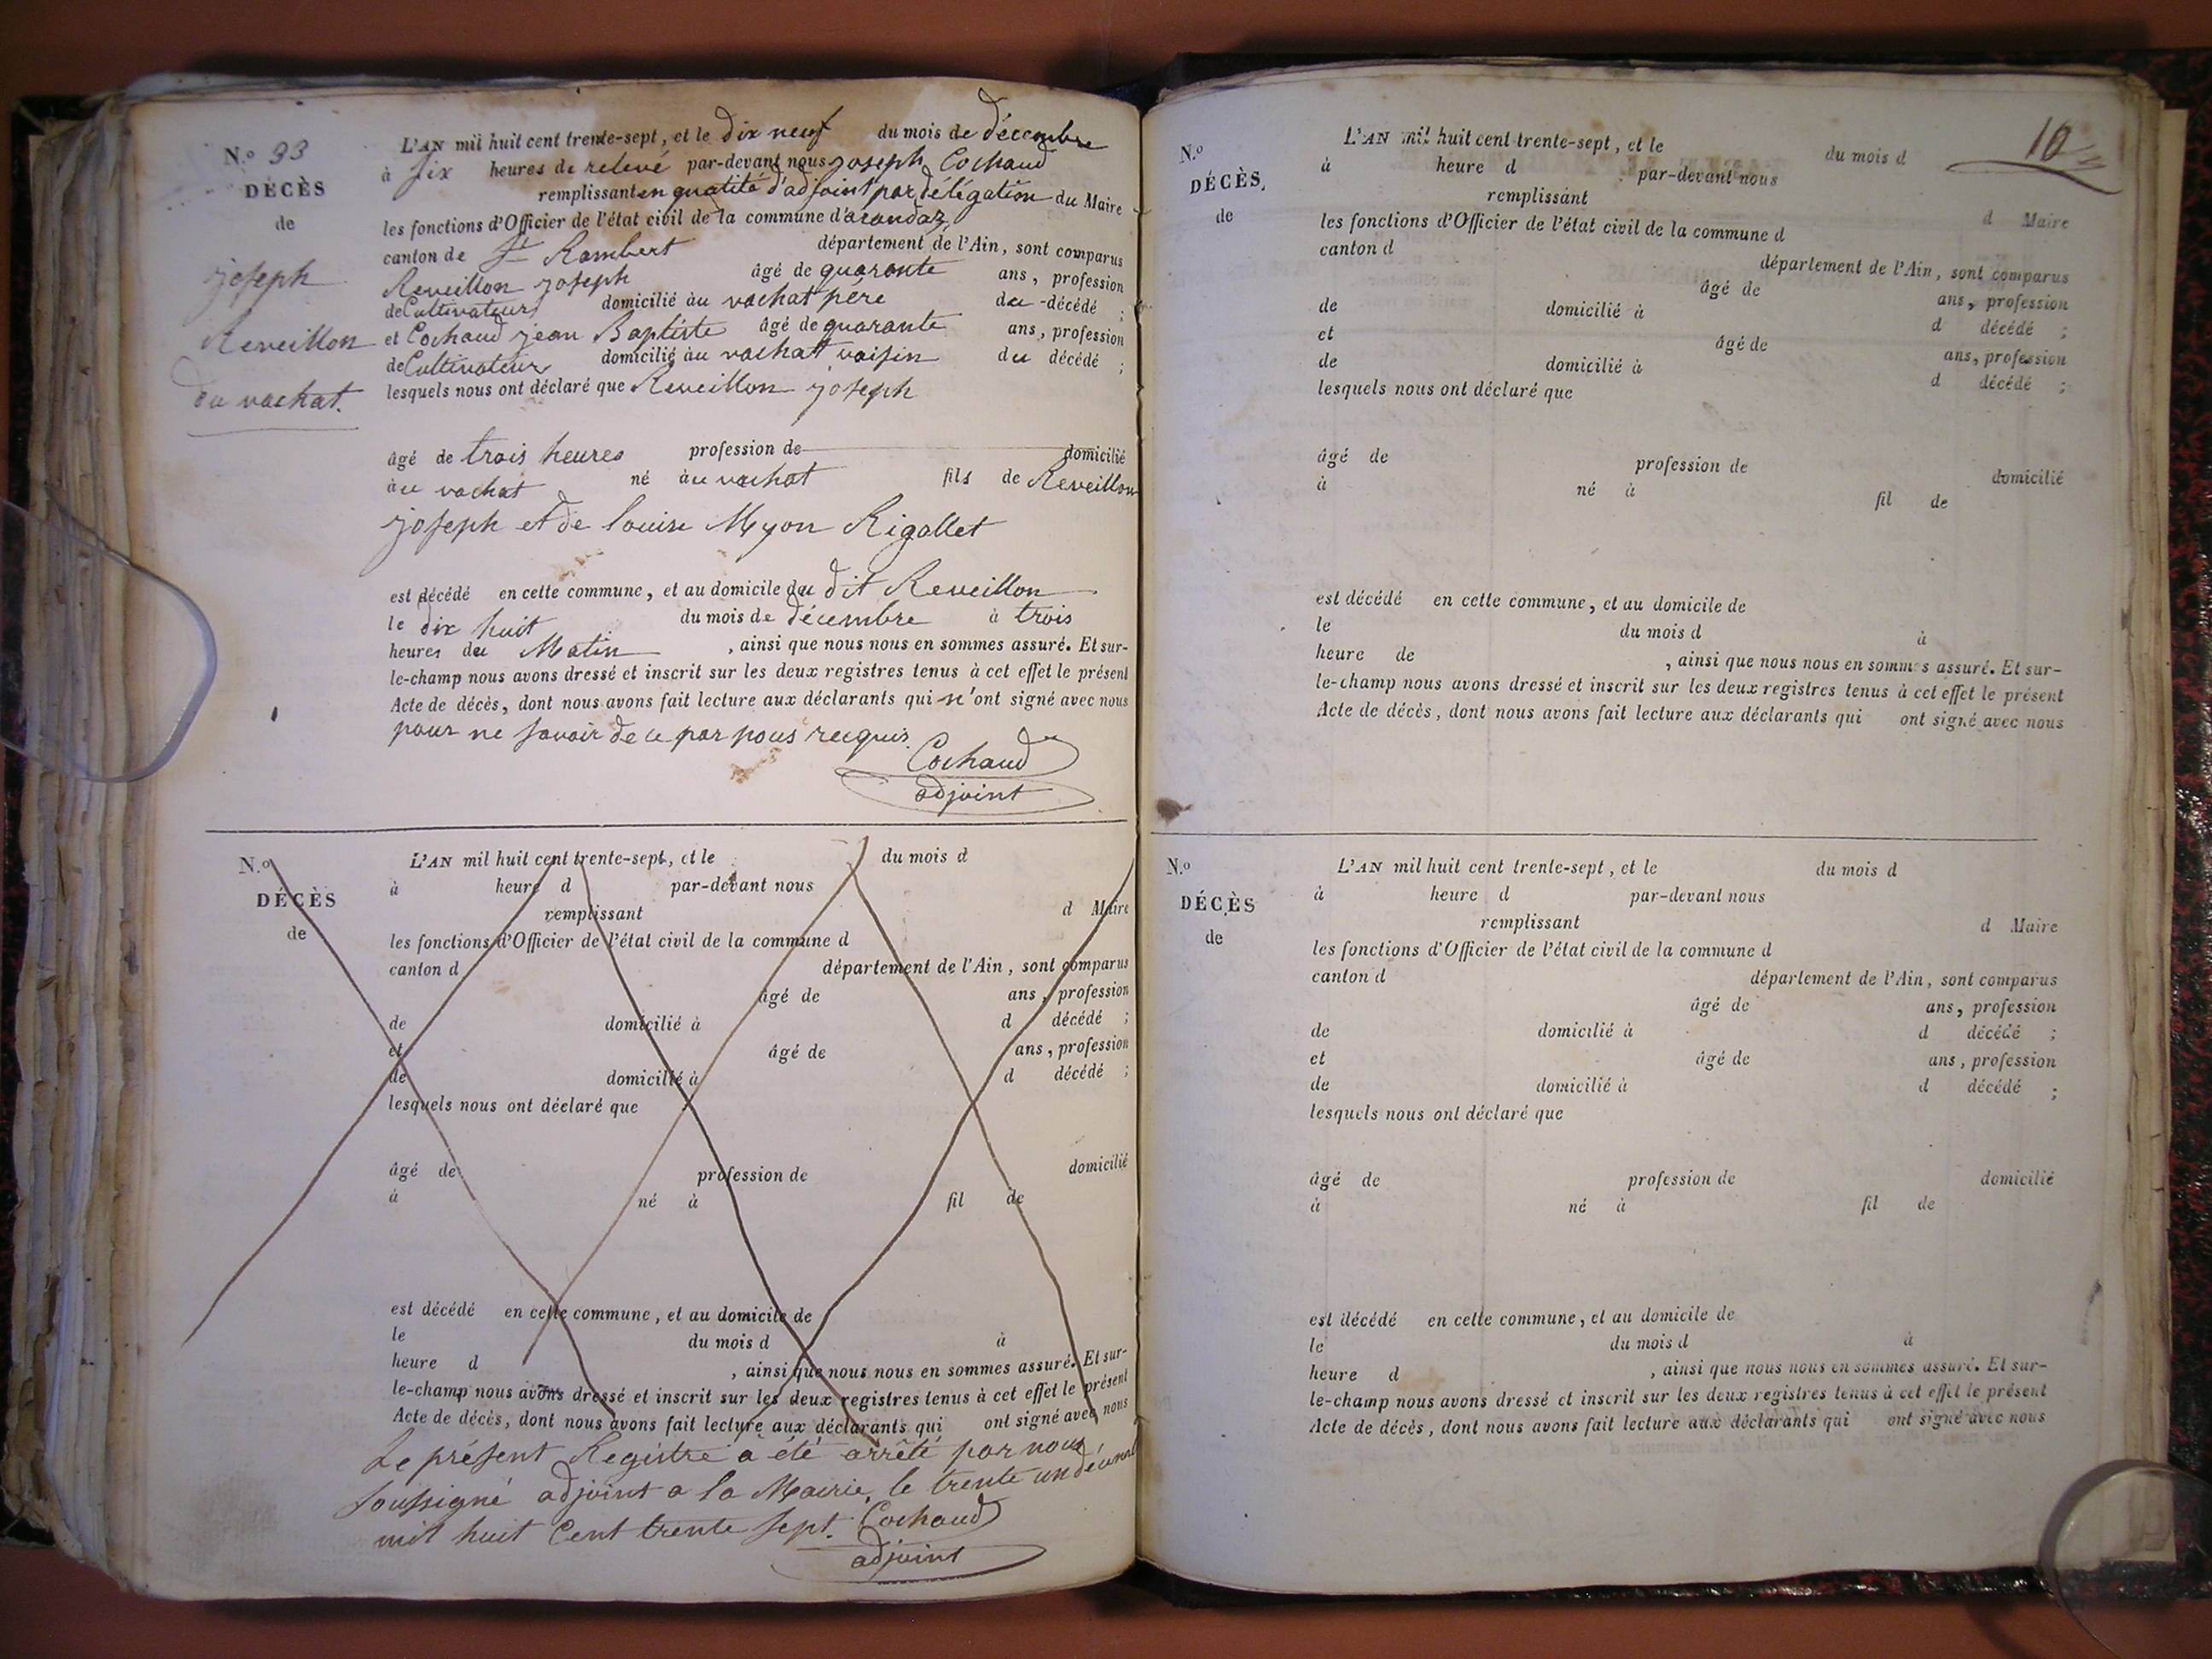 N.º 33
DÉCÈS
de
joseph
Reveillon
du vachat.
L'AN mil huit cent trente-sept, et le dix neuf du mois de décembre
à six heures de relevé par-devant nous joseph Cochaud
remplissant en quatité d'adjoint par délégation du Maire
les fonctions d'Officier de l'état civil de la commune d'arandaz
canton de St Rambert département de l'Ain, sont comparus
Reveillon joseph âgé de quarante ans, profession
de Cultivateur domicilié au vachat père du décédé ;
et Cochaud jean Baptiste âgé de quarante ans, profession
de Cultivateur domicilié au vachat voisin du décédé ;
lesquels nous ont déclaré que Reveillon joseph
âgé de trois heures profession de domicilié
au vachat né au vachat fils de Reveillon
joseph et de louise Myon Rigollet
est décédé en cette commune, et au domicile du dit Reveillon
le dix huit du mois de décembre à trois
heures du Matin , ainsi que nous nous en sommes assuré. Et sur-
le-champ nous avons dressé et inscrit sur les deux registres tenus à cet effet le présent
Acte de décès, dont nous avons fait lecture aux déclarants qui n'ont signé avec nous
pour ne savoir de ce par nous recquis.
Cochaud
adjoint
N.º
DÉCÈS
de
L'AN mil huit cent trente-sept, et le du mois d
à heure d par-devant nous
remplissant d Maire
les fonctions d'Officier de l'état civil de la commune d
canton d département de l'Ain, sont comparus
âgé de ans, profession
de domicilié à d décédé ;
et âgé de ans, profession
de domicilié à d décédé ;
lesquels nous ont déclaré que
âgé de profession de domicilié
à né à fil de
est décédé en cette commune, et au domicile de
le du mois d à
heure d , ainsi que nous nous en sommes assuré. Et sur-
le-champ nous avons dressé et inscrit sur les deux registres tenus à cet effet le présent
Acte de décès, dont nous avons fait lecture aux déclarants qui ont signé avec nous
Le présent Registre a été arrêté par nous
soussigné adjoint a la Mairie, le trente un décembre
mil huit Cent trente sept. Cochaud
adjoint
10
N.º
DÉCÈS,
de
L'AN mil huit cent trente-sept, et le du mois d
à heure d par-devant nous
remplissant d Maire
les fonctions d'Officier de l'état civil de la commune d
canton d département de l'Ain, sont comparus
âgé de ans, profession
de domicilié à d décédé ;
et âgé de ans, profession
de domicilié à d décédé ;
lesquels nous ont déclaré que
âgé de profession de domicilié
à né à fil de
est décédé en cette commune, et au domicile de
le du mois d à
heure de , ainsi que nous nous en sommes assuré. Et sur-
le-champ nous avons dressé et inscrit sur les deux registres tenus à cet effet le présent
Acte de décès, dont nous avons fait lecture aux déclarants qui ont signé avec nous
N.º
DÉCÈS
de
L'AN mil huit cent trente-sept, et le du mois d
à heure d par-devant nous
remplissant d Maire
les fonctions d'Officier de l'état civil de la commune d
canton d département de l'Ain, sont comparus
âgé de ans, profession
de domicilié à d décédé ;
et âgé de ans, profession
de domicilié à d décédé ;
lesquels nous ont déclaré que
âgé de profession de domicilié
à né à fil de
est décédé en cette commune, et au domicile de
le du mois d à
heure d , ainsi que nous nous en sommes assuré. Et sur-
le-champ nous avons dressé et inscrit sur les deux registres tenus à cet effet le présent
Acte de décès, dont nous avons fait lecture aux déclarants qui ont signé avec nous